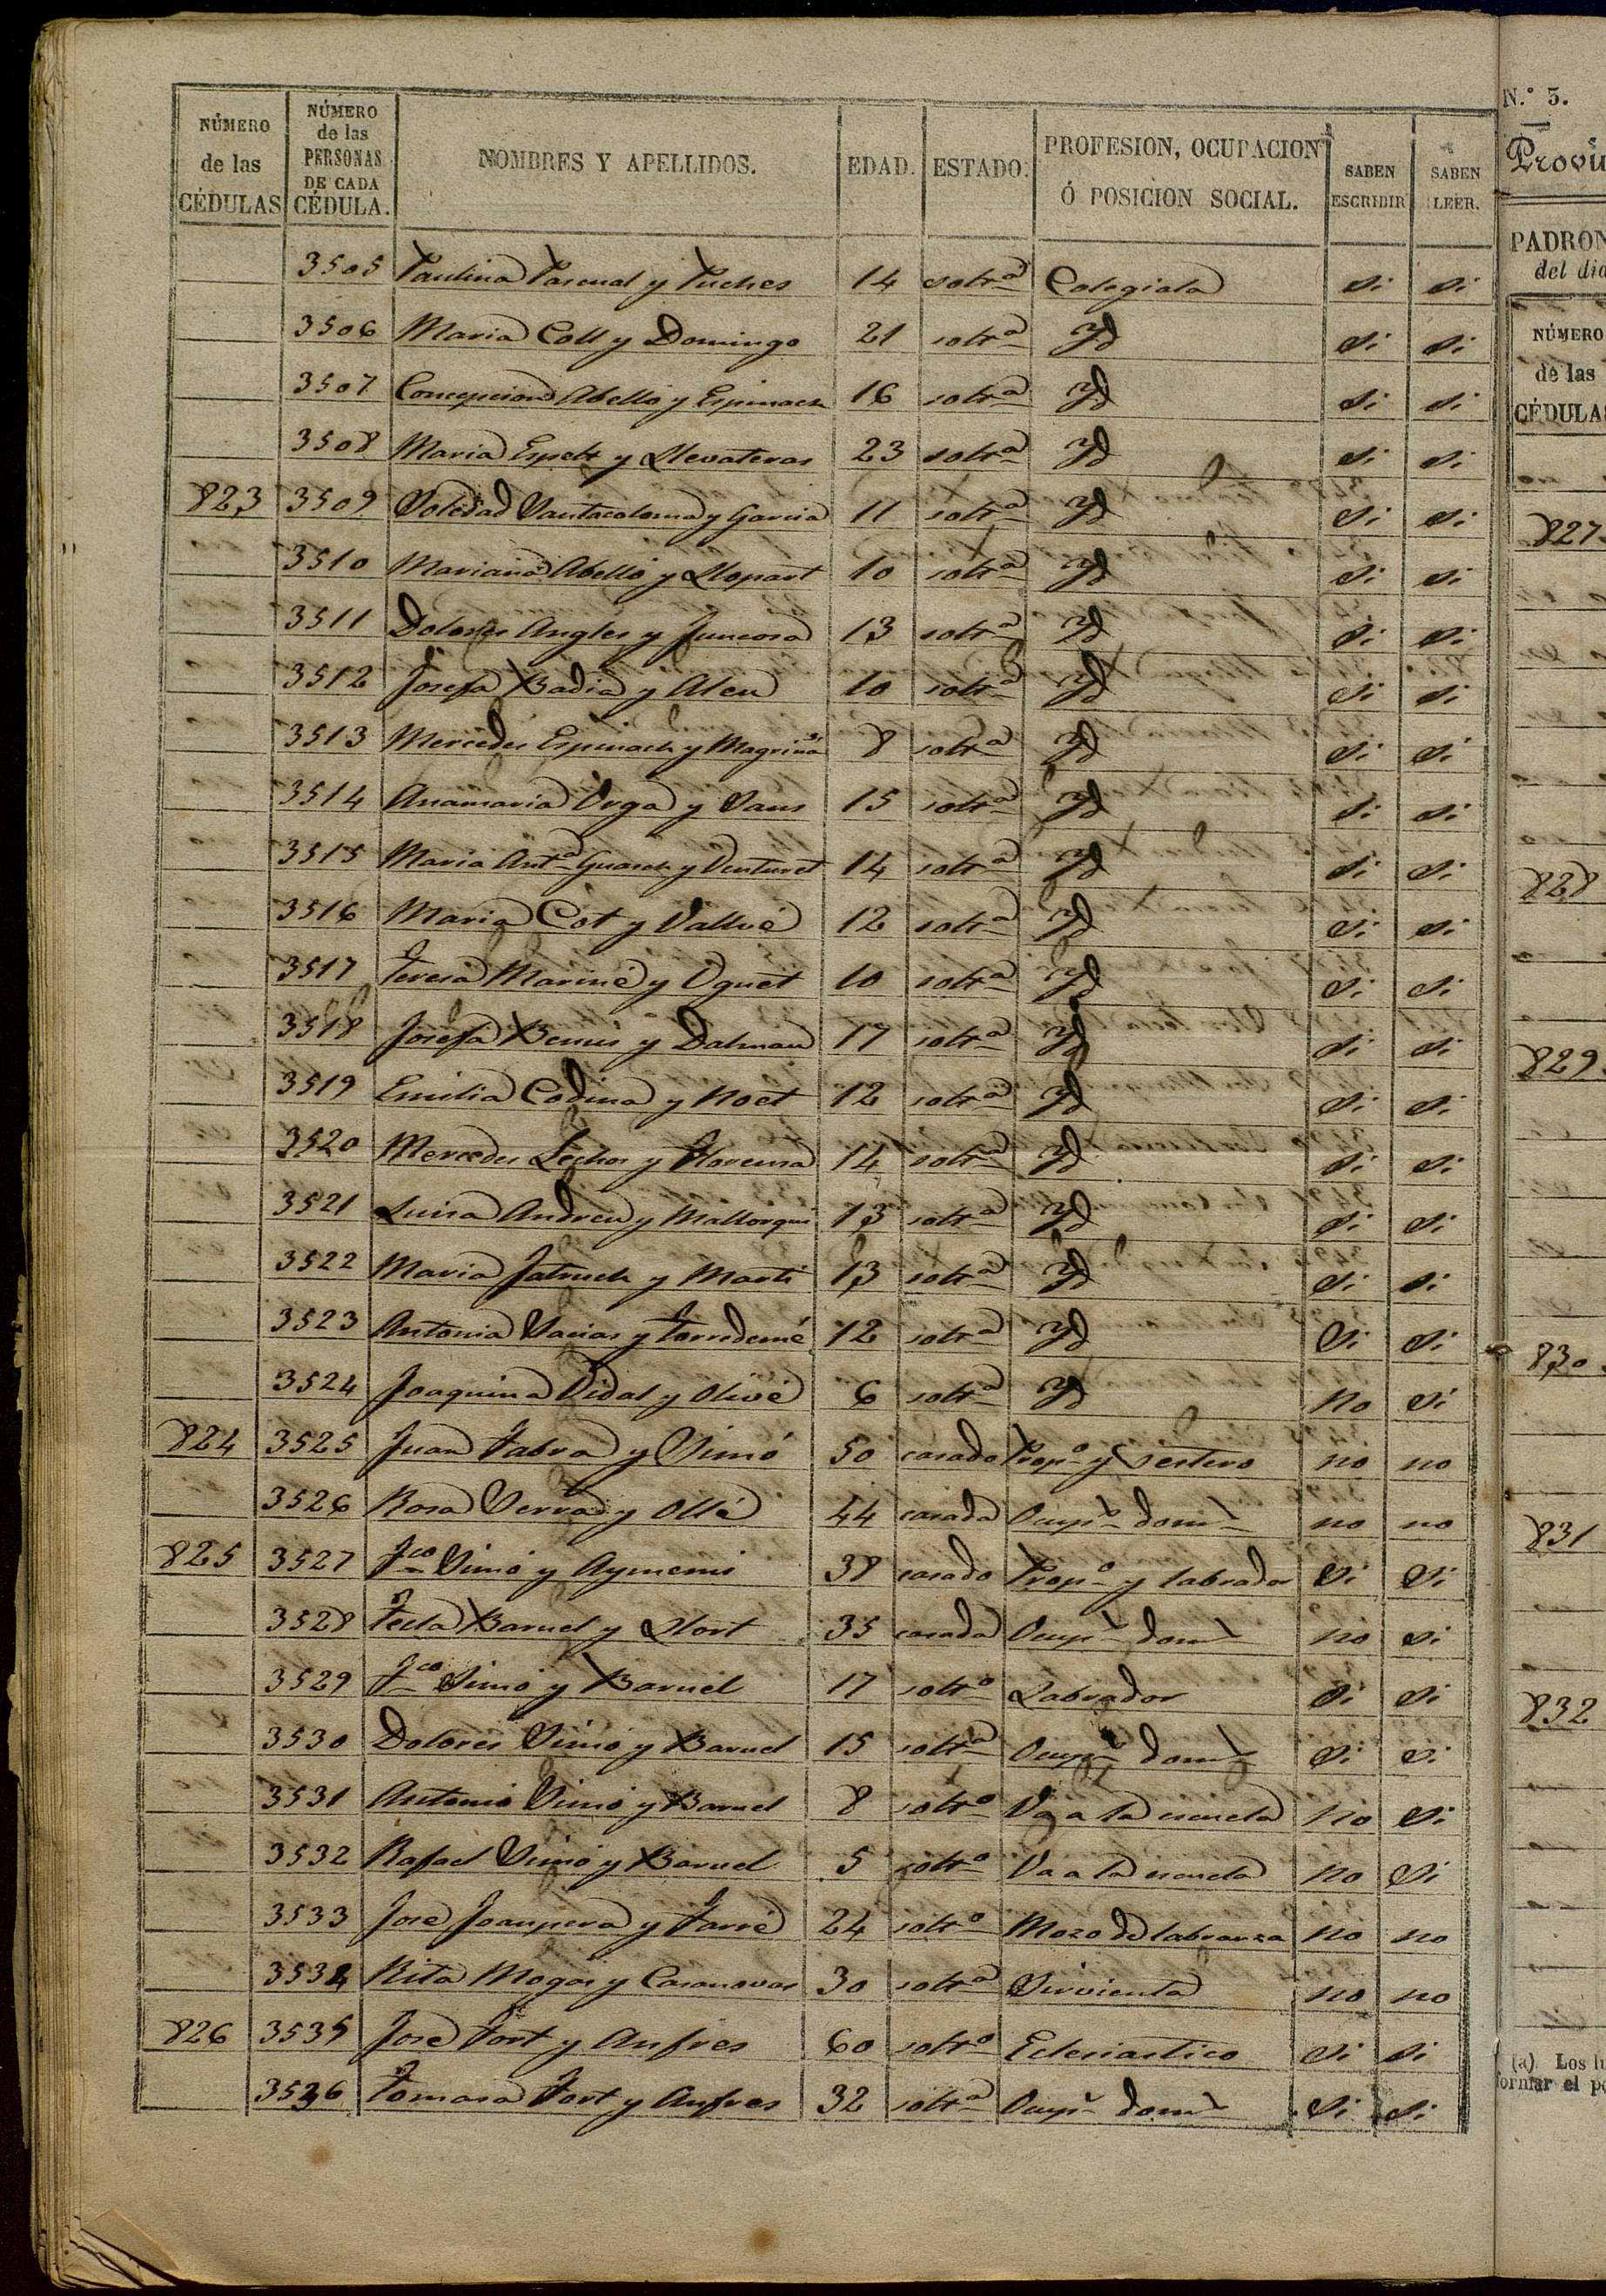 NÚMERO de las CÉDULAS NÚMERO de las PERSONAS DE CADA CÉDULA. NOMBRES Y APELLIDOS. EDAD. ESTADO. PROFESION, OCUPACION Ó POSICION SOCIAL. SABEN ESCRIBIR SABEN LEER.
3505 Paulina Pascual y Puches 14 soltª Colegiala si si
3506 Maria Coll y Domingo 21 soltª Yd si si
3507 Concepcion Abelló y Espinach 16 soltª Yd si si
3508 Maria Espelt y Llevateras 23 soltª Yd si si
823 3509 Soledad Santacoloma y Garcia 11 soltª Yd si si
3510 Mariana Abelló y Llopart 10 soltª Yd si si
3511 Dolores Angles y Juncosa 13 soltª Yd si si
3512 Josefa Badia y Aleu 10 soltª Yd si si
3513 Mercedes Espinach y Magriñá 8 soltª Yd si si
3514 Anamaria Urga y Sans 15 soltª Yd si si
3515 Maria Antª Guasch y Venturet 14 soltª Yd si si
3516 Maria Cot y Vallvé 12 soltª Yd si si
3517 Teresa Mariné y Uguet 10 soltª Yd si si
3518 Josefa y Dalmau 17 soltª Yd si si
3519 Emilia Codina y Noet 12 soltª Yd si si
3520 Mercedes y Florensa 14 soltª Yd si si
3521 Luisa Andreu y Mallorqui 13 soltª Yd si si
3522 Maria Jatruch y Marti 13 soltª Yd si si
3523 Antonia y Torredemé 12 soltª Yd Si si
3524 Joaquina Vidal y Olivé 6 soltª Yd no si
824 3525 Juan Fabra y Simó 50 casado Propº y no no
3526 Rosa Serra y Ollé 44 casada Ocupª domª no no
825 3527 Fco Simó y Aymemi 38 casado Propº y labrador Si Si
3528 Tecla Baruel y Llort 35 casada Ocupª domª no si
3529 Fco Simó y Baruel 17 soltº Labrador si si
3530 Dolores Simó y Baruel 15 soltª Ocupª domª si si
3531 Antonio Simó y Baruel 8 soltº Va a la escuela no si
3532 Rafael Simó y Baruel 5 soltº Va a la escuela no Si
3533 José Joanpera y Farré 24 soltº Mozo de labranza no no
3534 Rita Mogas y Casanovas 30 soltª Sirvienta no no
826 3535 José Fort y Anfres 60 soltº Eclesiastico si si
3536 Tomasa Fort y Anfres 32 soltª Ocupª domª si si
N.º 3.
Provin
PADRON
del dia
NÚMERO
de las
CÉDULAS
827
828
829
830
831
832
(a) Los
formar el